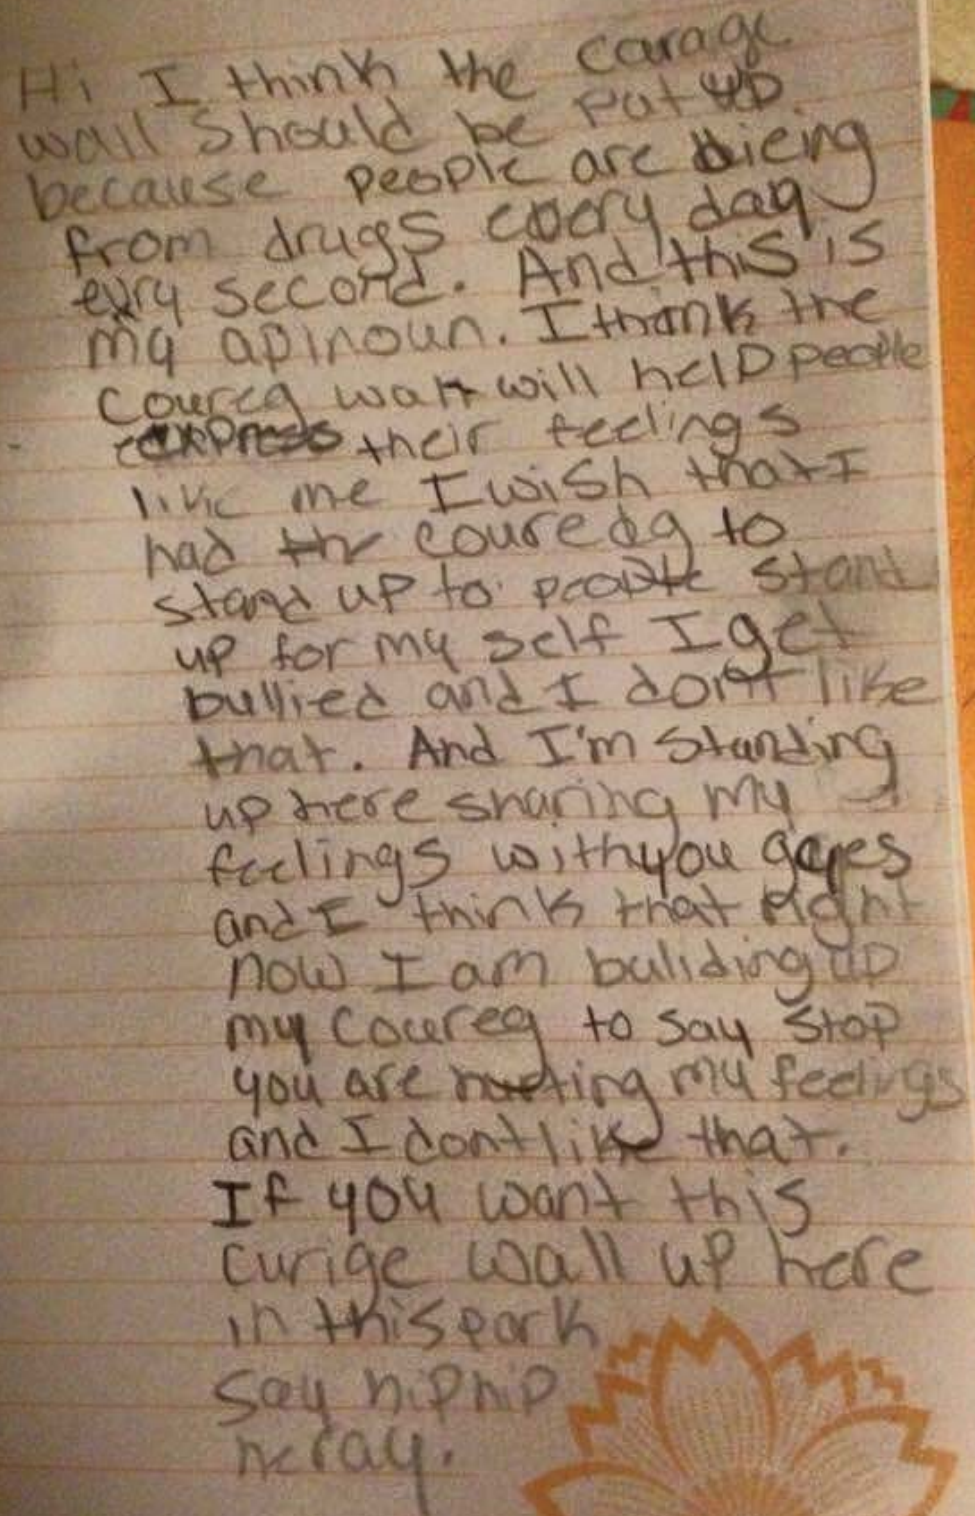 Hi I think the carage
wall should be put up
because people are dieing
from drugs every day
evry second. And this is
my apinoun. I think the
coureg wall will help people
express their feelings
like me I wish that I
had the couredg to
stand up to people stand
up for my self I get
bullied and I don't like
that. And I'm standing
up here sharing my
feelings with you gayes
and I think that right
now I am buliding up
my coureg to say stop
you are hurting my feelings
and I dont like that.
If you want this
curige wall up here
in this park
say hip hip
heray.